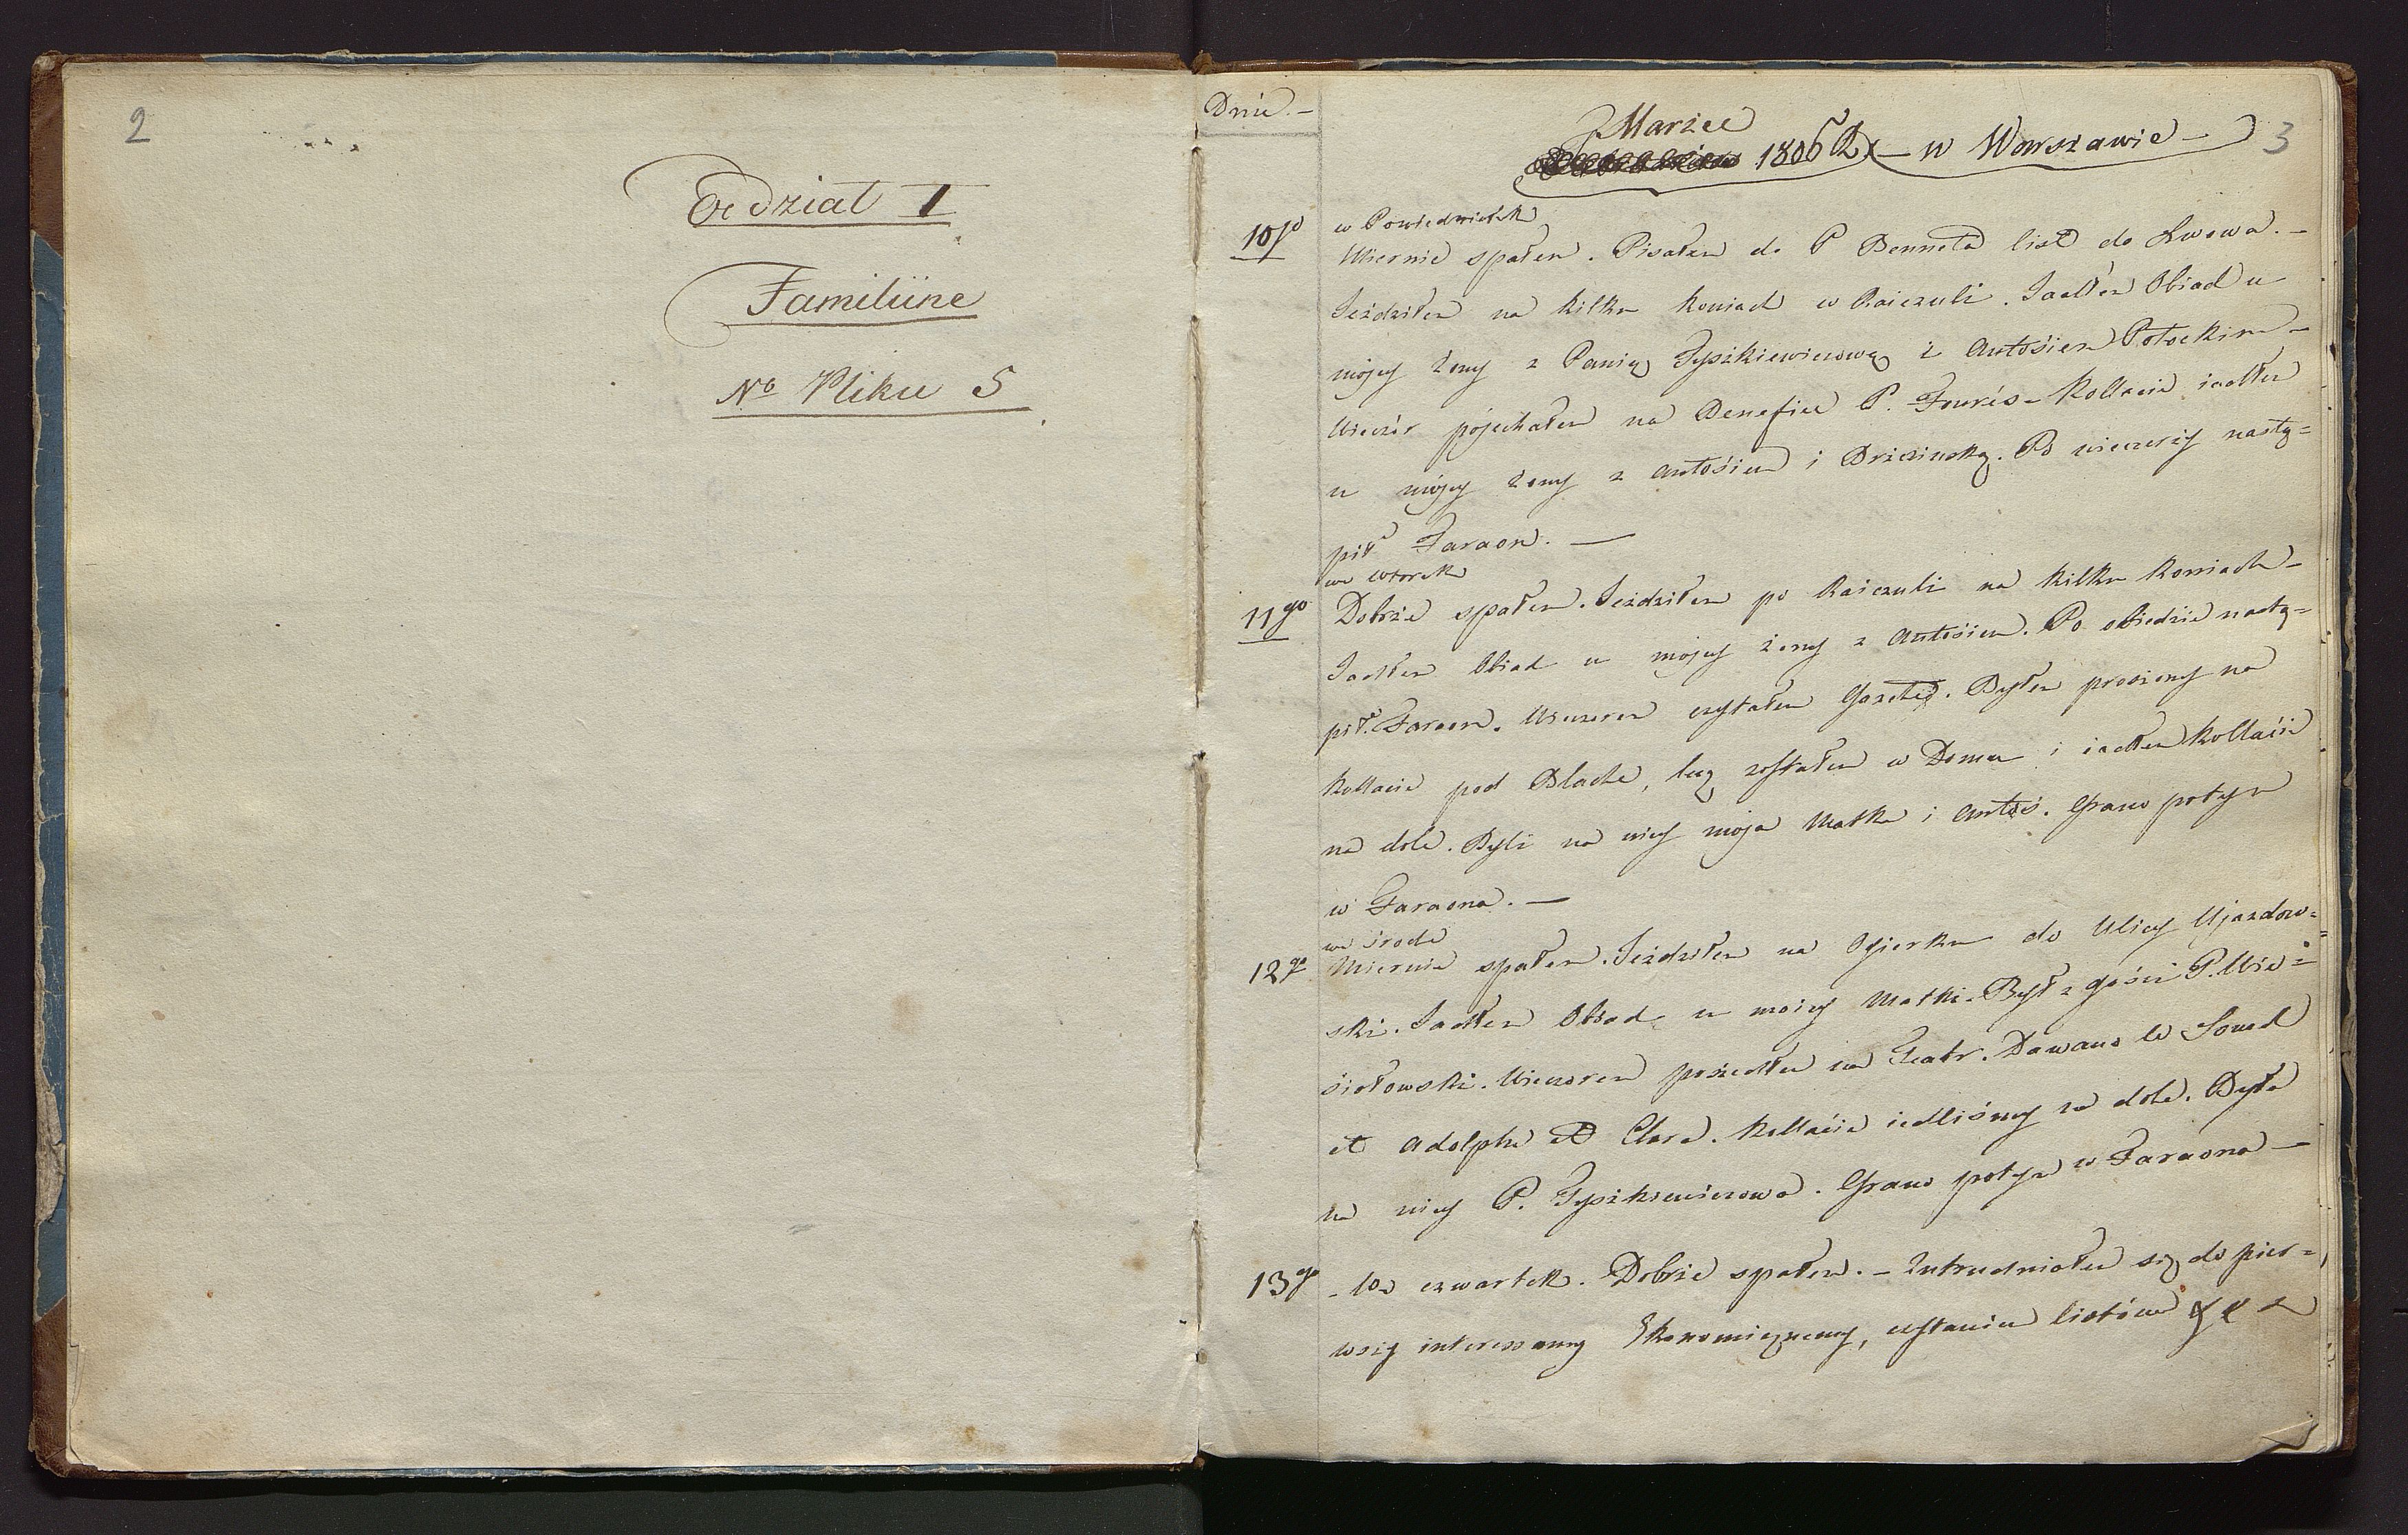 2
Oddział I
Familiine
No Pliku 5
Dnie.-
Marzec
1806 R. - w Warszawie - 3
10go w Poniedziałek
Miernie spałem. Pisałem do P Benneta list do Lwowa.-
Jeździłem na kilku koniach w Raiczuli. Jadłem Obiad u
mojey żony z Panią Tyszkiewiczową i Antosiem Potockim -
Wieczór pojechałem na Benefice P. Fourés - Kollacie iadłem
u mojey żony z Antosiem i Brzezinską. Po wieczerzy nastą=
pił Faraon. —
we wtorek
11go Dobrze spałem. Jeździłem po Raiczuli na kilku koniach -
Jadłem Obiad u mojey żony z Antosiem. Po obiedzie nastą=
pił Faraon. Wieczorem czytałem Gazetę. Byłem proszony na
kollacie pod Blache, lecz zostałem w Domu i iadłem kollacie
na dole. Byli na niey moja Matka i Antoś. Grano potym
w Faraona. —
we środe
12go Miernie spałem. Jeździłem na Ogierku do Ulicy Ujazdow=
ski. Jadłem Obiad u moiey Matki. Był z gości P. Wie=
siołowski. Wieczorem poszedłem na Teatr. Dawano le Sourd
et Adolphe et Clara. Kollacie iedliśmy na dole. Była
na niey P. Tyszkiewiczowa. Grano potym w Faraona -
13go - We czwartek. Dobrze spałem. - Zatrudniałem się do pier=
wszy interessamy Ekonomicznemy, czytaniem listów